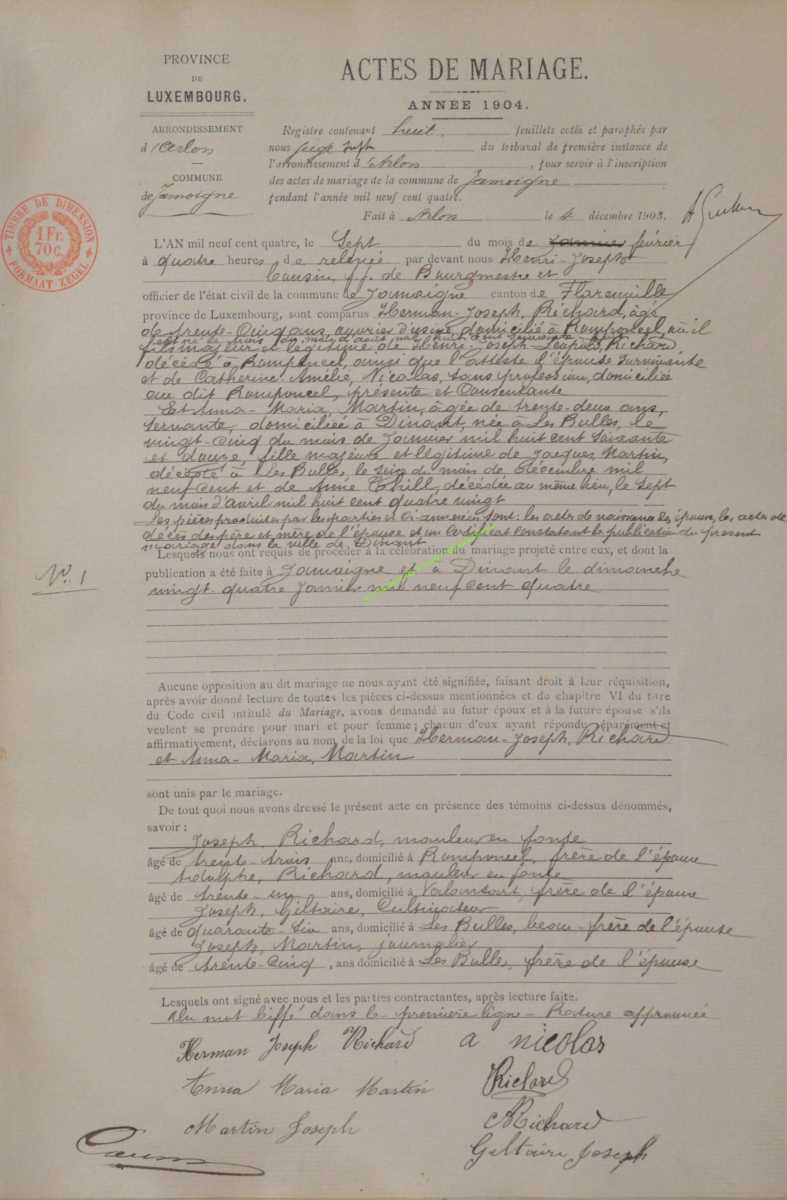 PROVINCE
DE
LUXEMBOURG.
ARRONDISSEMENT
d'Arlon
COMMUNE
de Jamoigne
TIMBRE DE DIMENSION
1 Fr.
70 C.
FORMAAT ZEGEL
ACTES DE MARIAGE.
ANNÉE 1904.
Registre contenant huit feuillets cotés et paraphés par
nous juge suplt du tribunal de première instance de
l'arrondissement d'Arlon, pour servir à l'inscription
des actes de mariage de la commune de Jamoigne
pendant l'année mil neuf cent quatre.
Fait à Arlon le 4 décembre 1903.
L'AN mil neuf cent quatre, le Sept du mois de janvier février
à quatre heures de relevée par devant nous Henri-Joseph
Causin, f.f. de Bourgmestre et
officier de l'état civil de la commune de Jamoigne canton de Florenville
province de Luxembourg, sont comparus Herman-Joseph, Richard, âgé
de trente-cinq ans, ouvrier d'usine, domicilié à Romponcel, où il
est né le du mois d'août mil huit cent soixante
fils majeur et légitime de Henri-Joseph Richard
décédé à Romponcel, ainsi que l'atteste l'épouse survivante
et de Catherine Amélie, Nicolas, sans profession, domiciliée
au dit Romponcel, présente et consentante
Et Anna-Maria, Martin, âgée de trente-deux ans,
servante, domiciliée à Dinant, née à Les Bulles, le
vingt-cinq du mois de Janvier mil huit cent soixante
et douze, fille majeure et légitime de Jacques Martin,
décédé à Les Bulles, le seize du mois de décembre mil
neuf cent et de Anne Thill, décédée au même lieu, le sept
du mois d'avril mil huit cent quatre vingt
Les pièces produites par les parties et ci-annexées sont: les actes de naissance des époux, les actes de
décès des père et mère de l'épouse et un certificat constatant la publication du présent
mariage dans la ville de Dinant
Lesquels nous ont requis de procéder à la célébration du mariage projeté entre eux, et dont la
publication a été faite à Jamoigne et à Dinant le dimanche
vingt-quatre Janvier mil neuf cent quatre
N°. 1
Aucune opposition au dit mariage ne nous ayant été signifiée, faisant droit à leur réquisition,
après avoir donné lecture de toutes les pièces ci-dessus mentionnées et du chapitre VI du titre
du Code civil intitulé du Mariage, avons demandé au futur époux et à la future épouse s'ils
veulent se prendre pour mari et pour femme; chacun d'eux ayant répondu séparément et
affirmativement, déclarons au nom de la loi que Herman-Joseph, Richard
et Anna-Maria, Martin
sont unis par le mariage.
De tout quoi nous avons dressé le présent acte en présence des témoins ci-dessus dénommés,
savoir:
Joseph, Richard, mouleur en fonte
âgé de trente-trois ans, domicilié à Romponcel, frère de l'époux
Adolphe, Richard, mouleur en fonte
âgé de trente-un ans, domicilié à Valansart, frère de l'époux
Joseph, Giltaire, Cultivateur
âgé de quarante-six ans, domicilié à Les Bulles, beau-frère de l'épouse
Joseph, Martin, journalier
âgé de trente-cinq, ans, domicilié à Les Bulles, frère de l'épouse
Lesquels ont signé avec nous et les parties contractantes, après lecture faite.
Un mot biffé dans la première ligne - Rature approuvée
Herman Joseph Richard a nicolas
Anna Maria Martin Richard
Martin Joseph Richard
Causin Giltaire Joseph